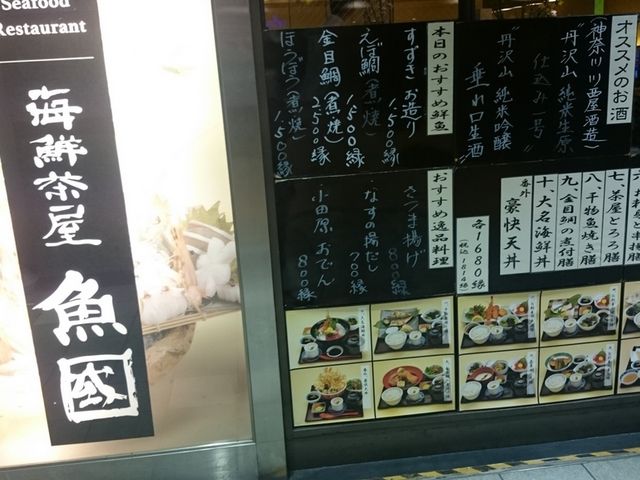 Seafood
Restaurant
海鮮茶屋
魚國
オススメのお酒
(神奈川 川西屋酒造)
"丹沢山 純米生原
仕込み一号"
"丹沢山 純米吟醸
垂れ口生酒"
本日のおすすめ鮮魚
すずき お造り
1,500縁
えぼ鯛(煮・焼)
1,500縁
金目鯛(煮・焼)
2500縁
ほうぼう(煮・焼)
1,500縁
おすすめ逸品料理
さつま揚げ
800縁
なすの揚だし
700縁
小田原おでん
800縁
七、茶屋とろろ膳
八、干物魚焼き膳
九、金目鯛の煮付膳
十、大名海鮮丼
番外 豪快天丼
各1680縁